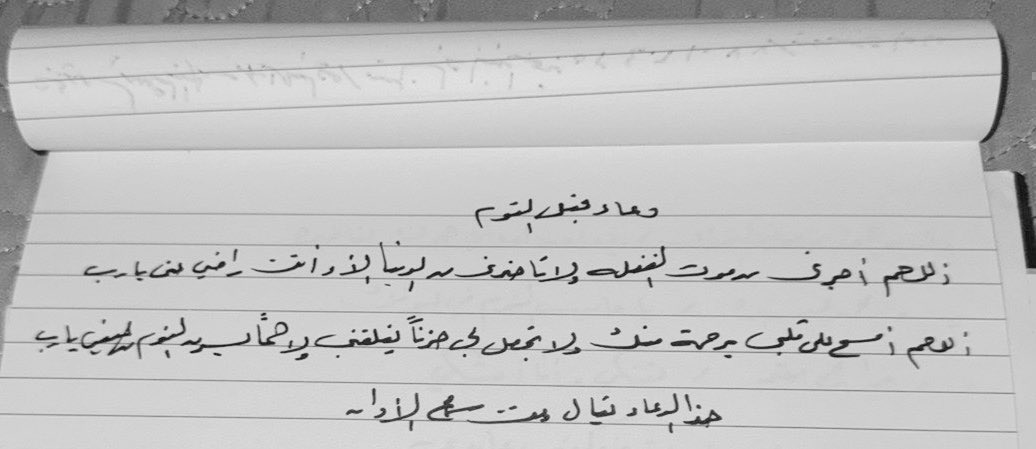 دعاء قبل النوم
اللهم أجرني من موت الغفله ولا تاخذني من الدنيا إلا و أنت راضي عني يا رب
اللهم أمسح على قلبي برحمة منك ولا تجعل لي حزناً يقلقني ولا همّاً يسرق النوم من يا رب
هذا الدعاء يقال وقت سماع الأذان